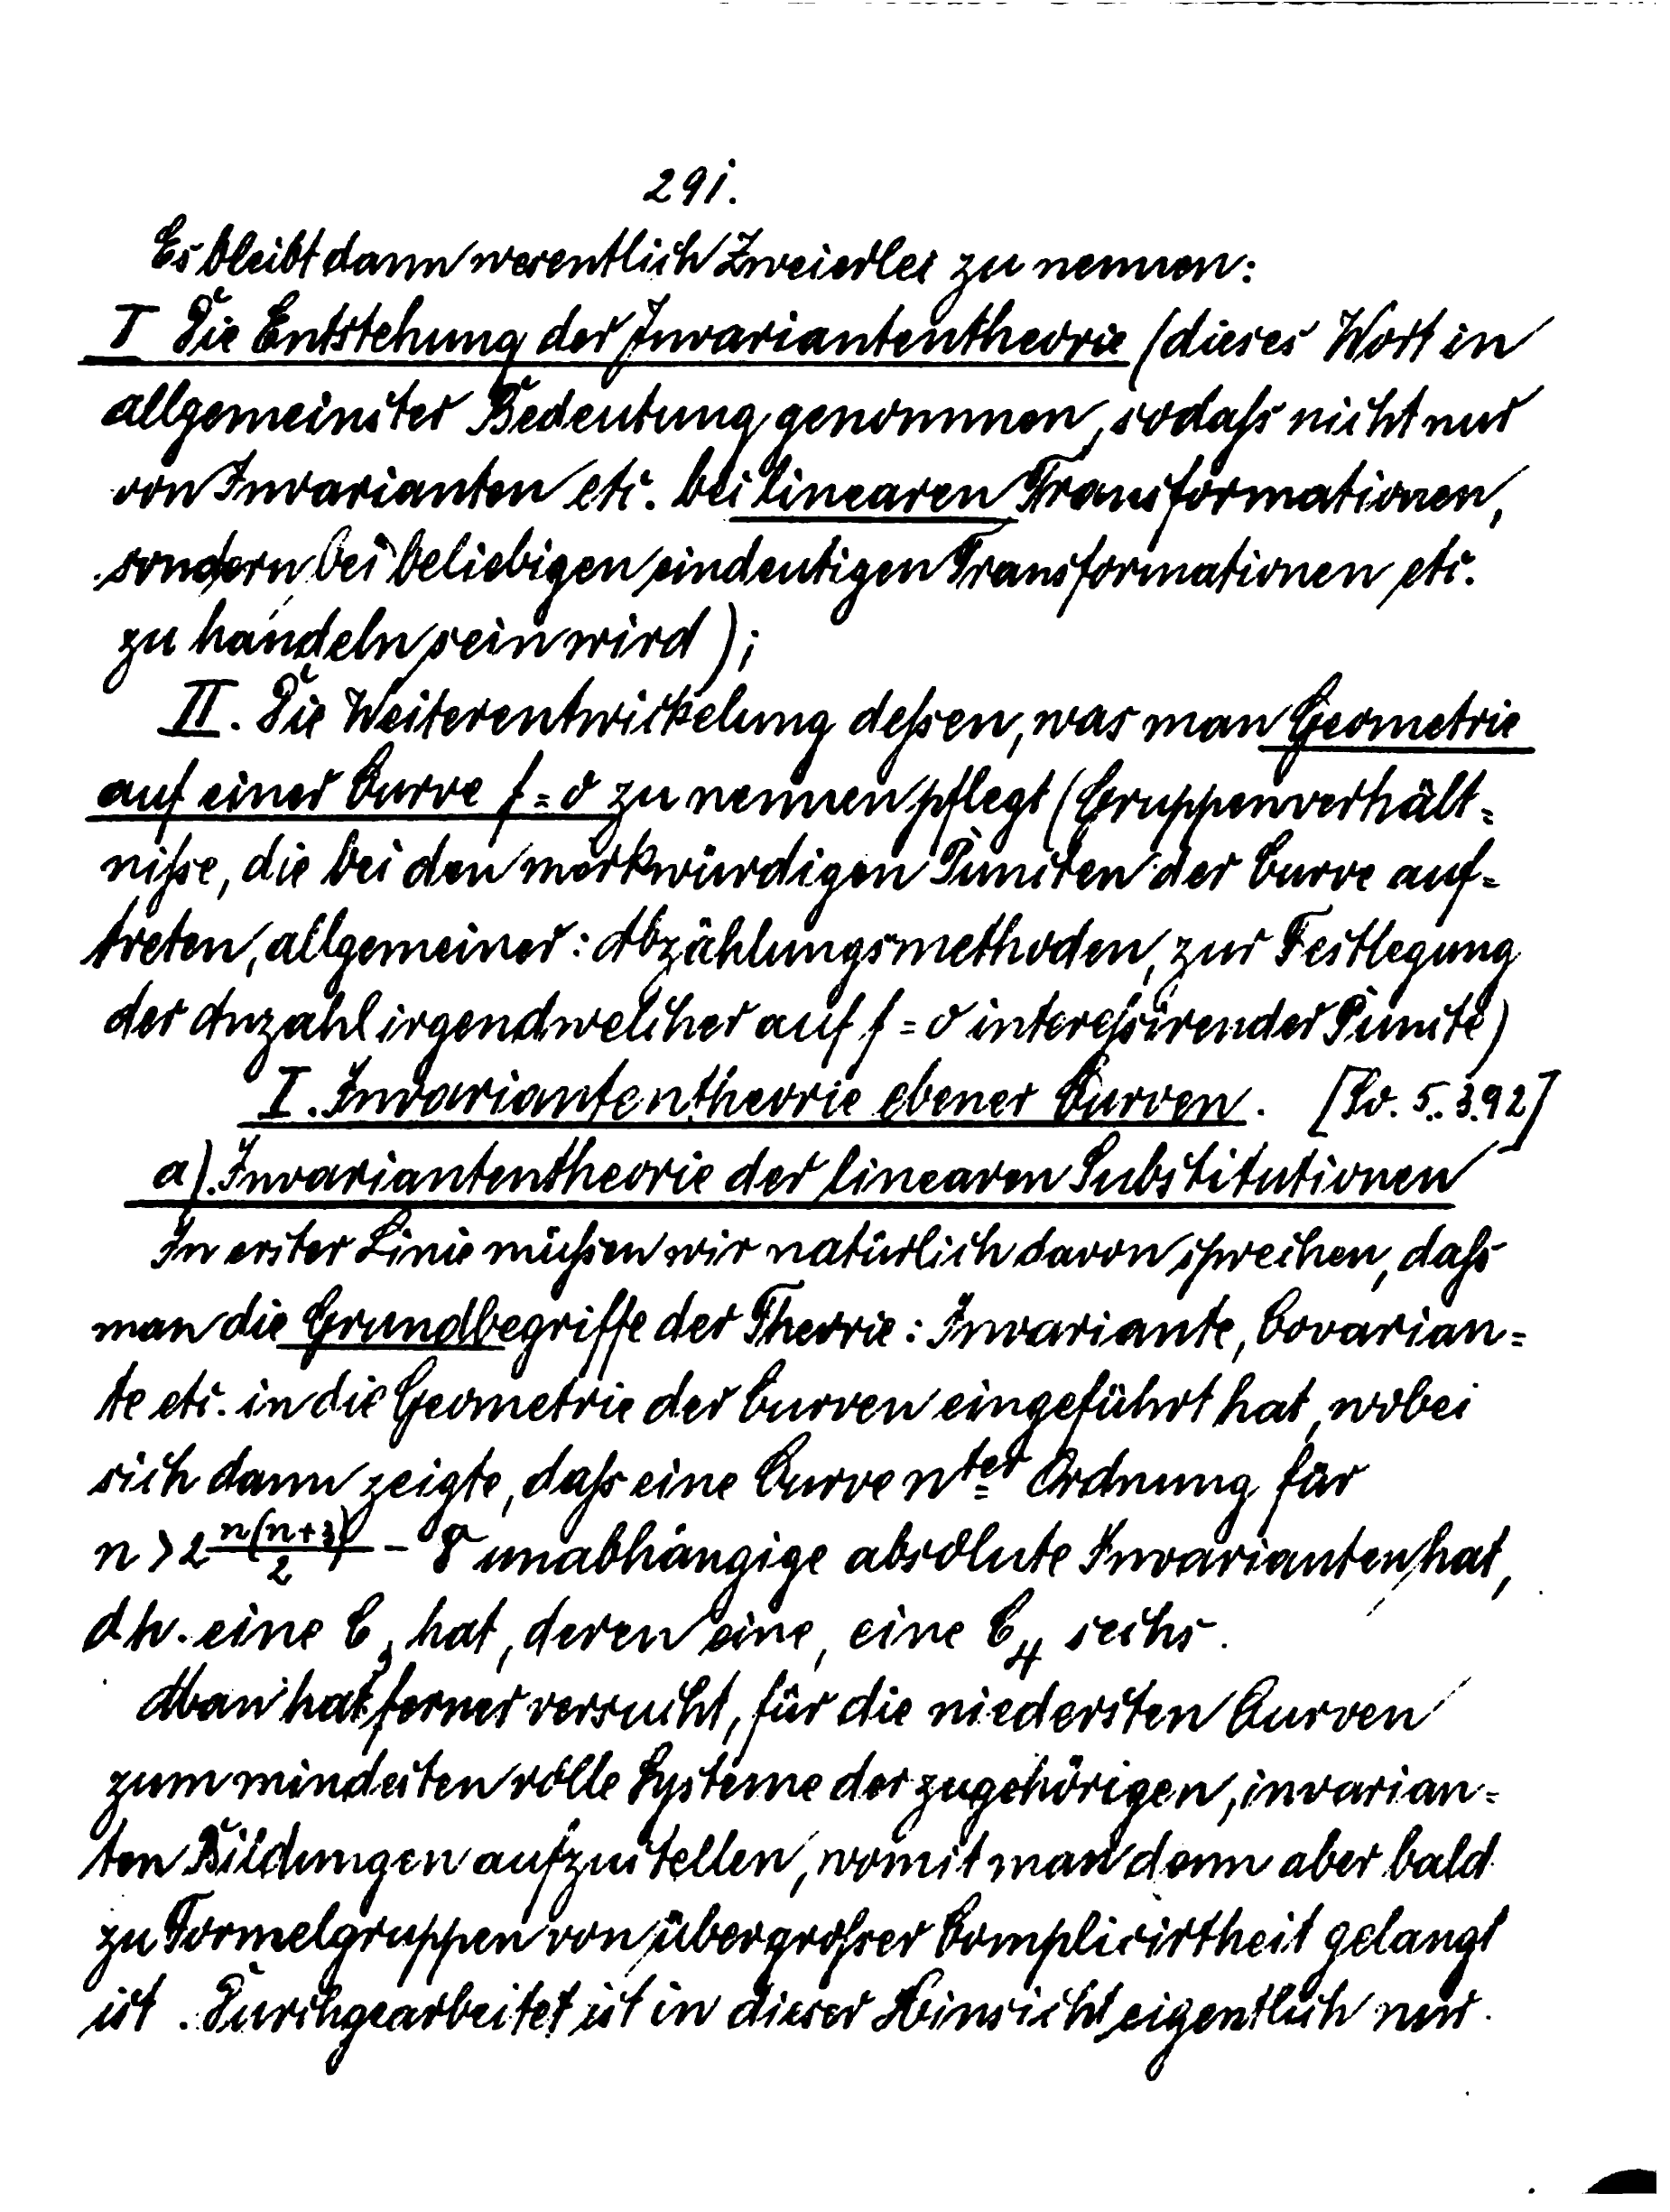 291.
Es bleibt dann wesentlich Zweierlei zu nennen:
I Die Entstehung der Invariantentheorie (dieses Wort in
allgemeinster Bedeutung genommen, sodaß nicht nur
von Invarianten etc. bei linearen Transformationen,
sondern bei beliebigen eindeutigen Transformationen etc.
zu handeln sein wird);
II. Die Weiterentwickelung deßen, was man Geometrie
auf einer Curve f=0 zu nennen pflegt (Gruppenverhält=
niße, die bei den merkwürdigen Puncten der Curve auf=
treten, allgemeiner: Abzählungsmethoden, zur Festlegung
der Anzahl irgendwelcher auf f=0 intereßirender Puncte)
I. Invariantentheorie ebener Curven. [So. 5.3.92]
a). Invariantentheorie der linearen Substitutionen
In erster Linie müßen wir natürlich davon sprechen, daß
man die Grundbegriffe der Theorie: Invariante, Covarian=
te etc. in die Geometrie der Curven eingeführt hat, wobei
sich dann zeigte, daß eine Curve nter Ordnung für
n > 2 n(n+3)/2 - 8 unabhängige absolute Invarianten hat,
d.h. eine C3 hat, deren eine, eine C4 sechs.
Man hat ferner versucht, für die niedersten Curven
zum mindesten volle Systeme der zugehörigen, invarian=
ten Bildungen aufzustellen, womit man denn aber bald
zu Formelgruppen von übergroßer Complicirtheit gelangt
ist. Durchgearbeitet ist in dieser Hinsicht eigentlich nur